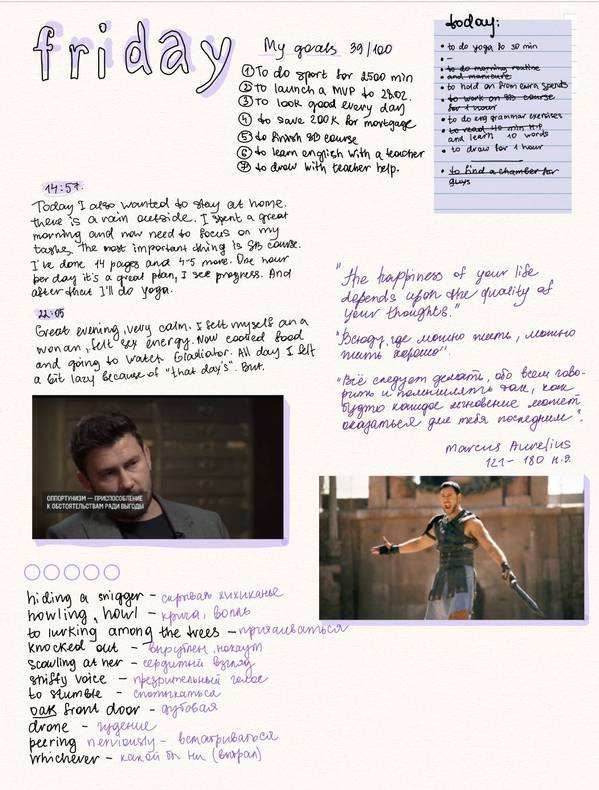 friday
My goals 39/100
① To do sport for 2500 min
② to launch a MVP to 28.02.
③ To look good every day
④ to save 200K for mortgage
⑤ to finish SB course
⑥ to learn english with a teacher
⑦ to draw with teacher help.
today:
• to do yoga to 30 min
• –
• to do morning routine
• and manicure
• to hold on from extra spends
• to work on SB course
for 1 hour
• to do eng grammar exercises
• to read 40 min H.P
and learn 10 words
• to draw for 1 hour
• to find a chamber for
guys
14:57.
Today I also wanted to stay at home.
there is a rain outside. I spent a great
morning and now need to focus on my
tasks. The most important thing is SB course.
I've done 14 pages and 4-5 more. One hour
per day it's a great plan, I see progress. And
after that I'll do yoga.
22:05
Great evening, very calm. I felt myself an a
woman, felt sex energy. Now cooked food
and going to watch Gladiator. All day I felt
a bit lazy because of "that day's". But.
"The happiness of your life
depends upon the quality of
your thoughts."
"Всюду, где можно жить, можно
жить хорошо".
"Всё следует делать, обо всем гово-
рить и помышлять так, как
будто каждое мгновение может
оказаться для тебя последним".
Marcus Aurelius
121 – 180 н.э.
ОППОРТУНИЗМ — ПРИСПОСОБЛЕНИЕ
К ОБСТОЯТЕЛЬСТВАМ РАДИ ВЫГОДЫ
hiding a snigger – скрывая хихиканье
howling, howl – крича, вопль
to lurking among the trees – притаиваться
knocked out – вырублен, нокаут
scowling at her – сердитый взгляд
shifty voice – презрительный голос
to stumble – спотыкаться
oak front door – дубовая
drone – гудение
peering nerviously – всматриваться
whichever – какой бы ни (выбрал)